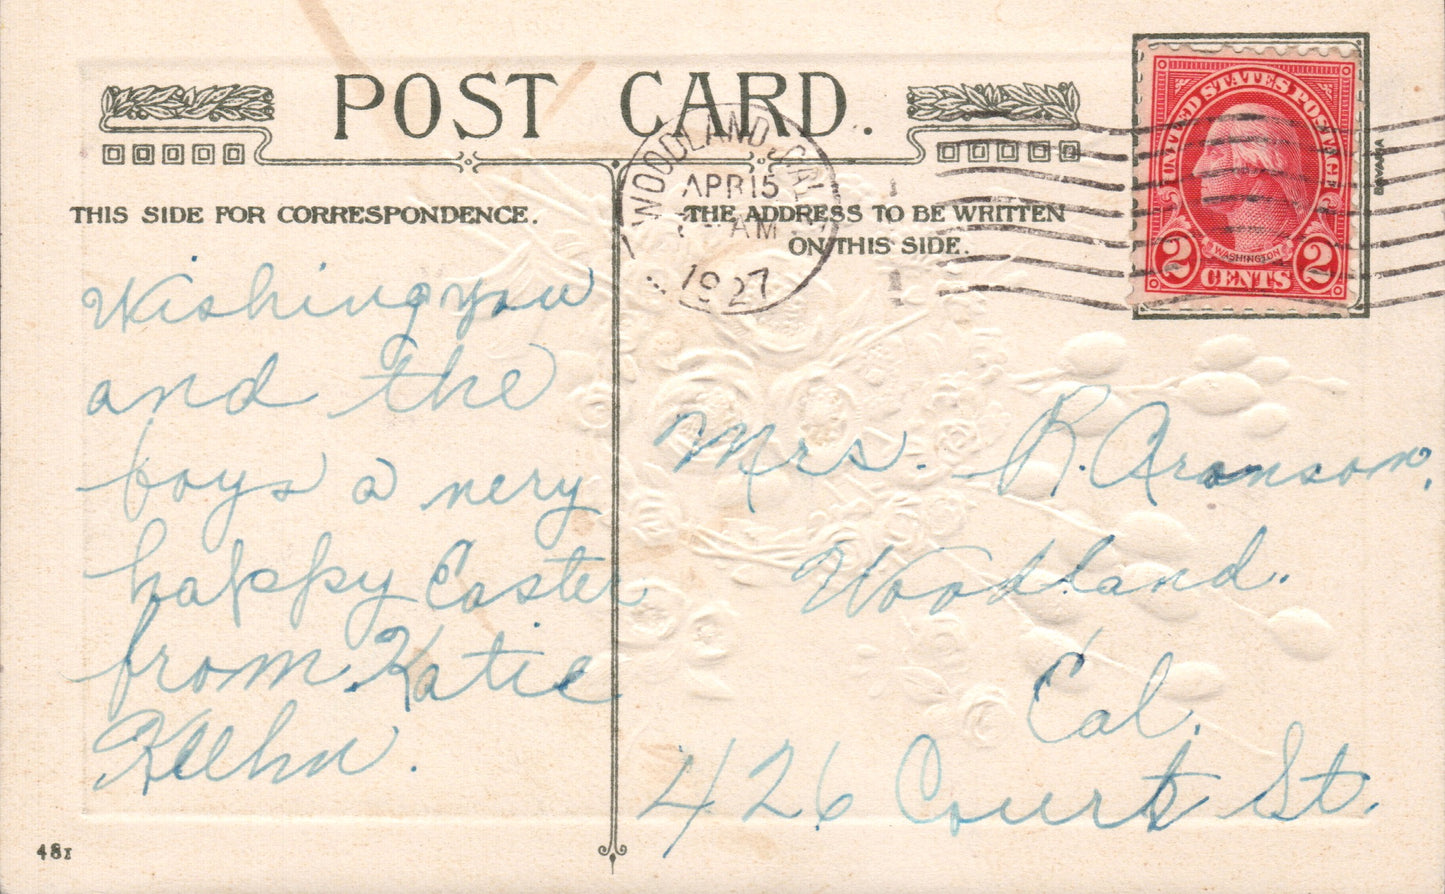 POST CARD.
THIS SIDE FOR CORRESPONDENCE.
THE ADDRESS TO BE WRITTEN
ON THIS SIDE.
WOODLAND, CAL
APR 15
AM
1927
UNITED STATES POSTAGE
WASHINGTON
2 CENTS 2
BAVARIA
Wishing you
and the
boys a very
happy Easter
from Katie
Kuhn.
Mrs. R. Aronson,
Woodland.
Cal.
426 Court St.
481